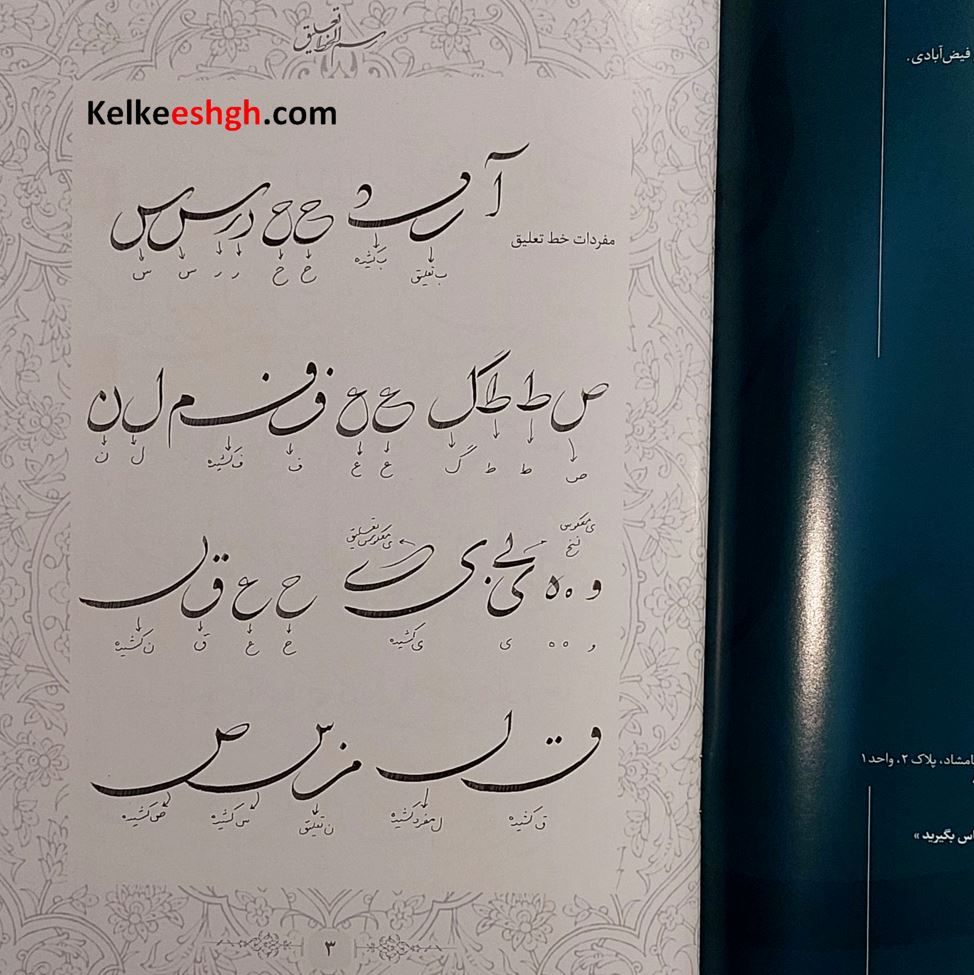 رسم الخط تعلیق
Kelkeeshgh.com
مفردات خط تعلیق
آ
ب تعلیق ب کشیده ح ح ر ر س س
ص ط ط گ ع ع ف ف م ل ن
ص ط ط گ ع ع ف ف کشیده ل ن
ی معکوس نسخ
ی معکوس تعلیق
و ه ه ی ی ح ع ق
و ه ه ی ی کشیده ح ع ق ن کشیده
ق کشیده ل مفرد کشیده ن تعلیق س کشیده ص کشیده
۳
فیض‌آبادی.
پلاک ۲، واحد ۱
بگیرید »